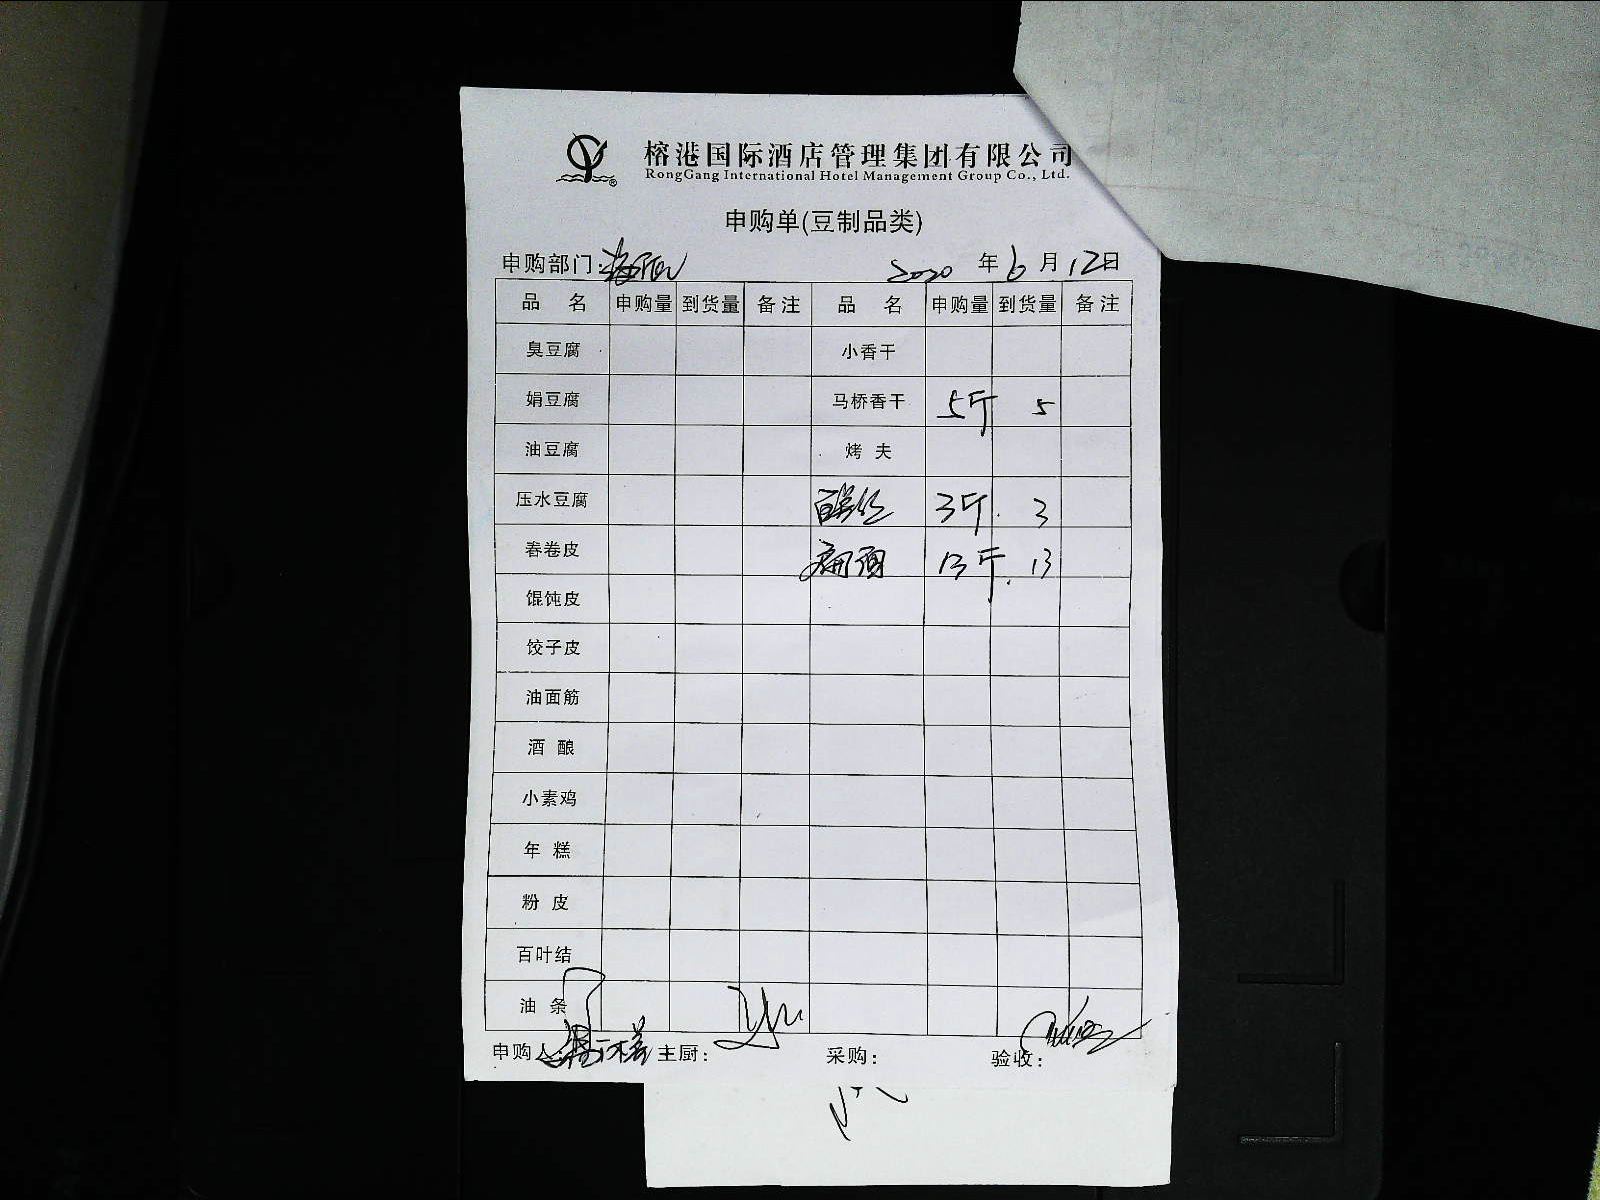 榕港国际酒店管理集团有限公司
RongGang International Hotel Management Group Co., Ltd.
申购单(豆制品类)
申购部门: 2020 年 6 月 12 日
品名 申购量 到货量 备注 品名 申购量 到货量 备注
臭豆腐 小香干
娟豆腐 马桥香干 5斤 5
油豆腐 烤夫
压水豆腐 百叶丝 3斤 3
春卷皮 13斤 13
馄饨皮
饺子皮
油面筋
酒酿
小素鸡
年糕
粉皮
百叶结
油条
申购人: 主厨: 采购: 验收: